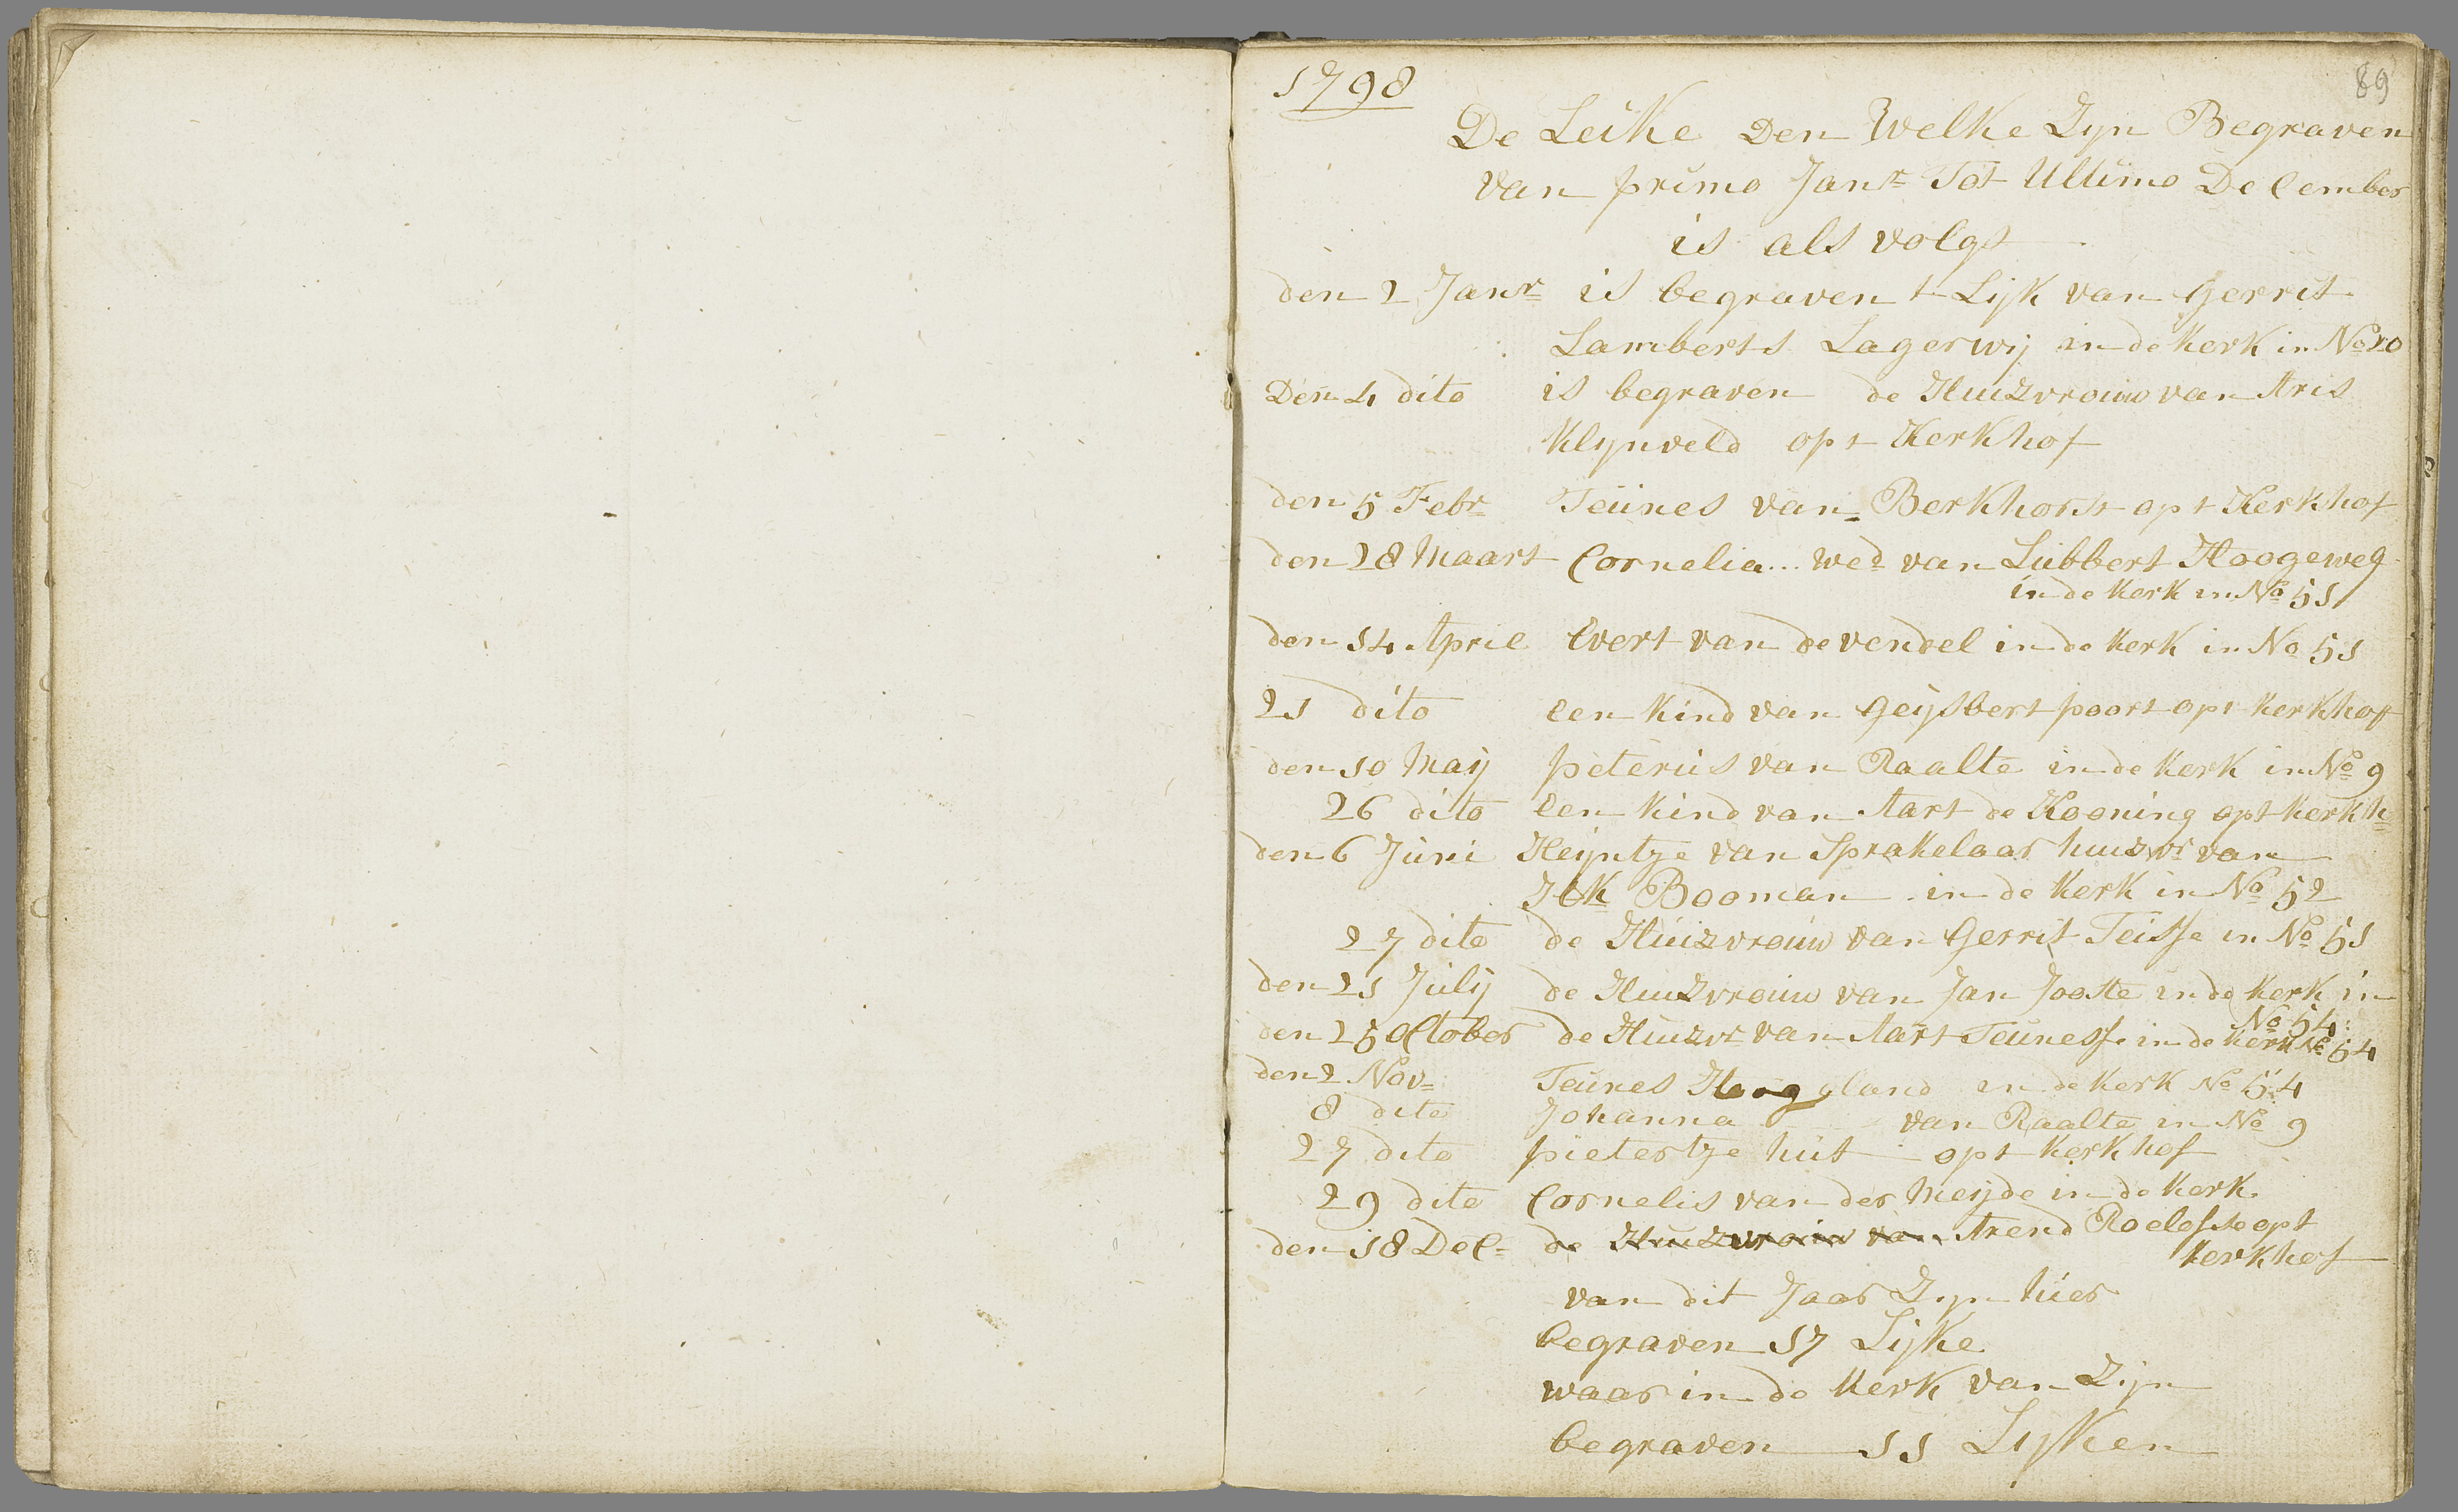 1798
89
De Leike Den Welke Zyn Begraven
van primo Janr Tot Ultimo December
is als volgt
den 2 Janr is begraven t Lijk van Gerrit
Lamberts Lagerwij in de kerk in No 10
Den 4 dito is begraven de Huizvrouw van Aris
Klynveld op t Kerkhof
den 5 Febr Teunes van Berkhorst op t Kerkhof
den 28 Maart Cornelia... wed van Lubbert Hoogeweg
in de kerk in No 51
den 14 April Evert van de vendel in de kerk in No 51
21 dito een kind van Geijsbert poort op t kerkhof
den 10 Maij peterus van Raalte in de kerk in No 9
26 dito een kind van Aart de Kooning opt kerkh
den 6 Juni Heijntje van Sprakelaar huizvr van
Hk Booman in de kerk in No 52
27 dito de Huizvrouw van Gerrit Teisse in No 51
den 21 Julij de Huizvrouw van Jan Jooste in de kerk in
No 54
den 25 October de Huizvr van Aart Teunesse in de kerk No 54
den 2 Nov Teunes Hoogland in de kerk No 54
8 dito Johanna van Raalte in No 9
27 dito pietertje hut op t kerkhof
29 dito Cornelis van der Meijde in de kerk
den 18 Dec de Huizvrouw van Arend Roelofse opt
kerkhof
van dit Jaar Zyn hier
begraven 17 Lijke
waar in de kerk van Zijn
begraven 11 Lijken